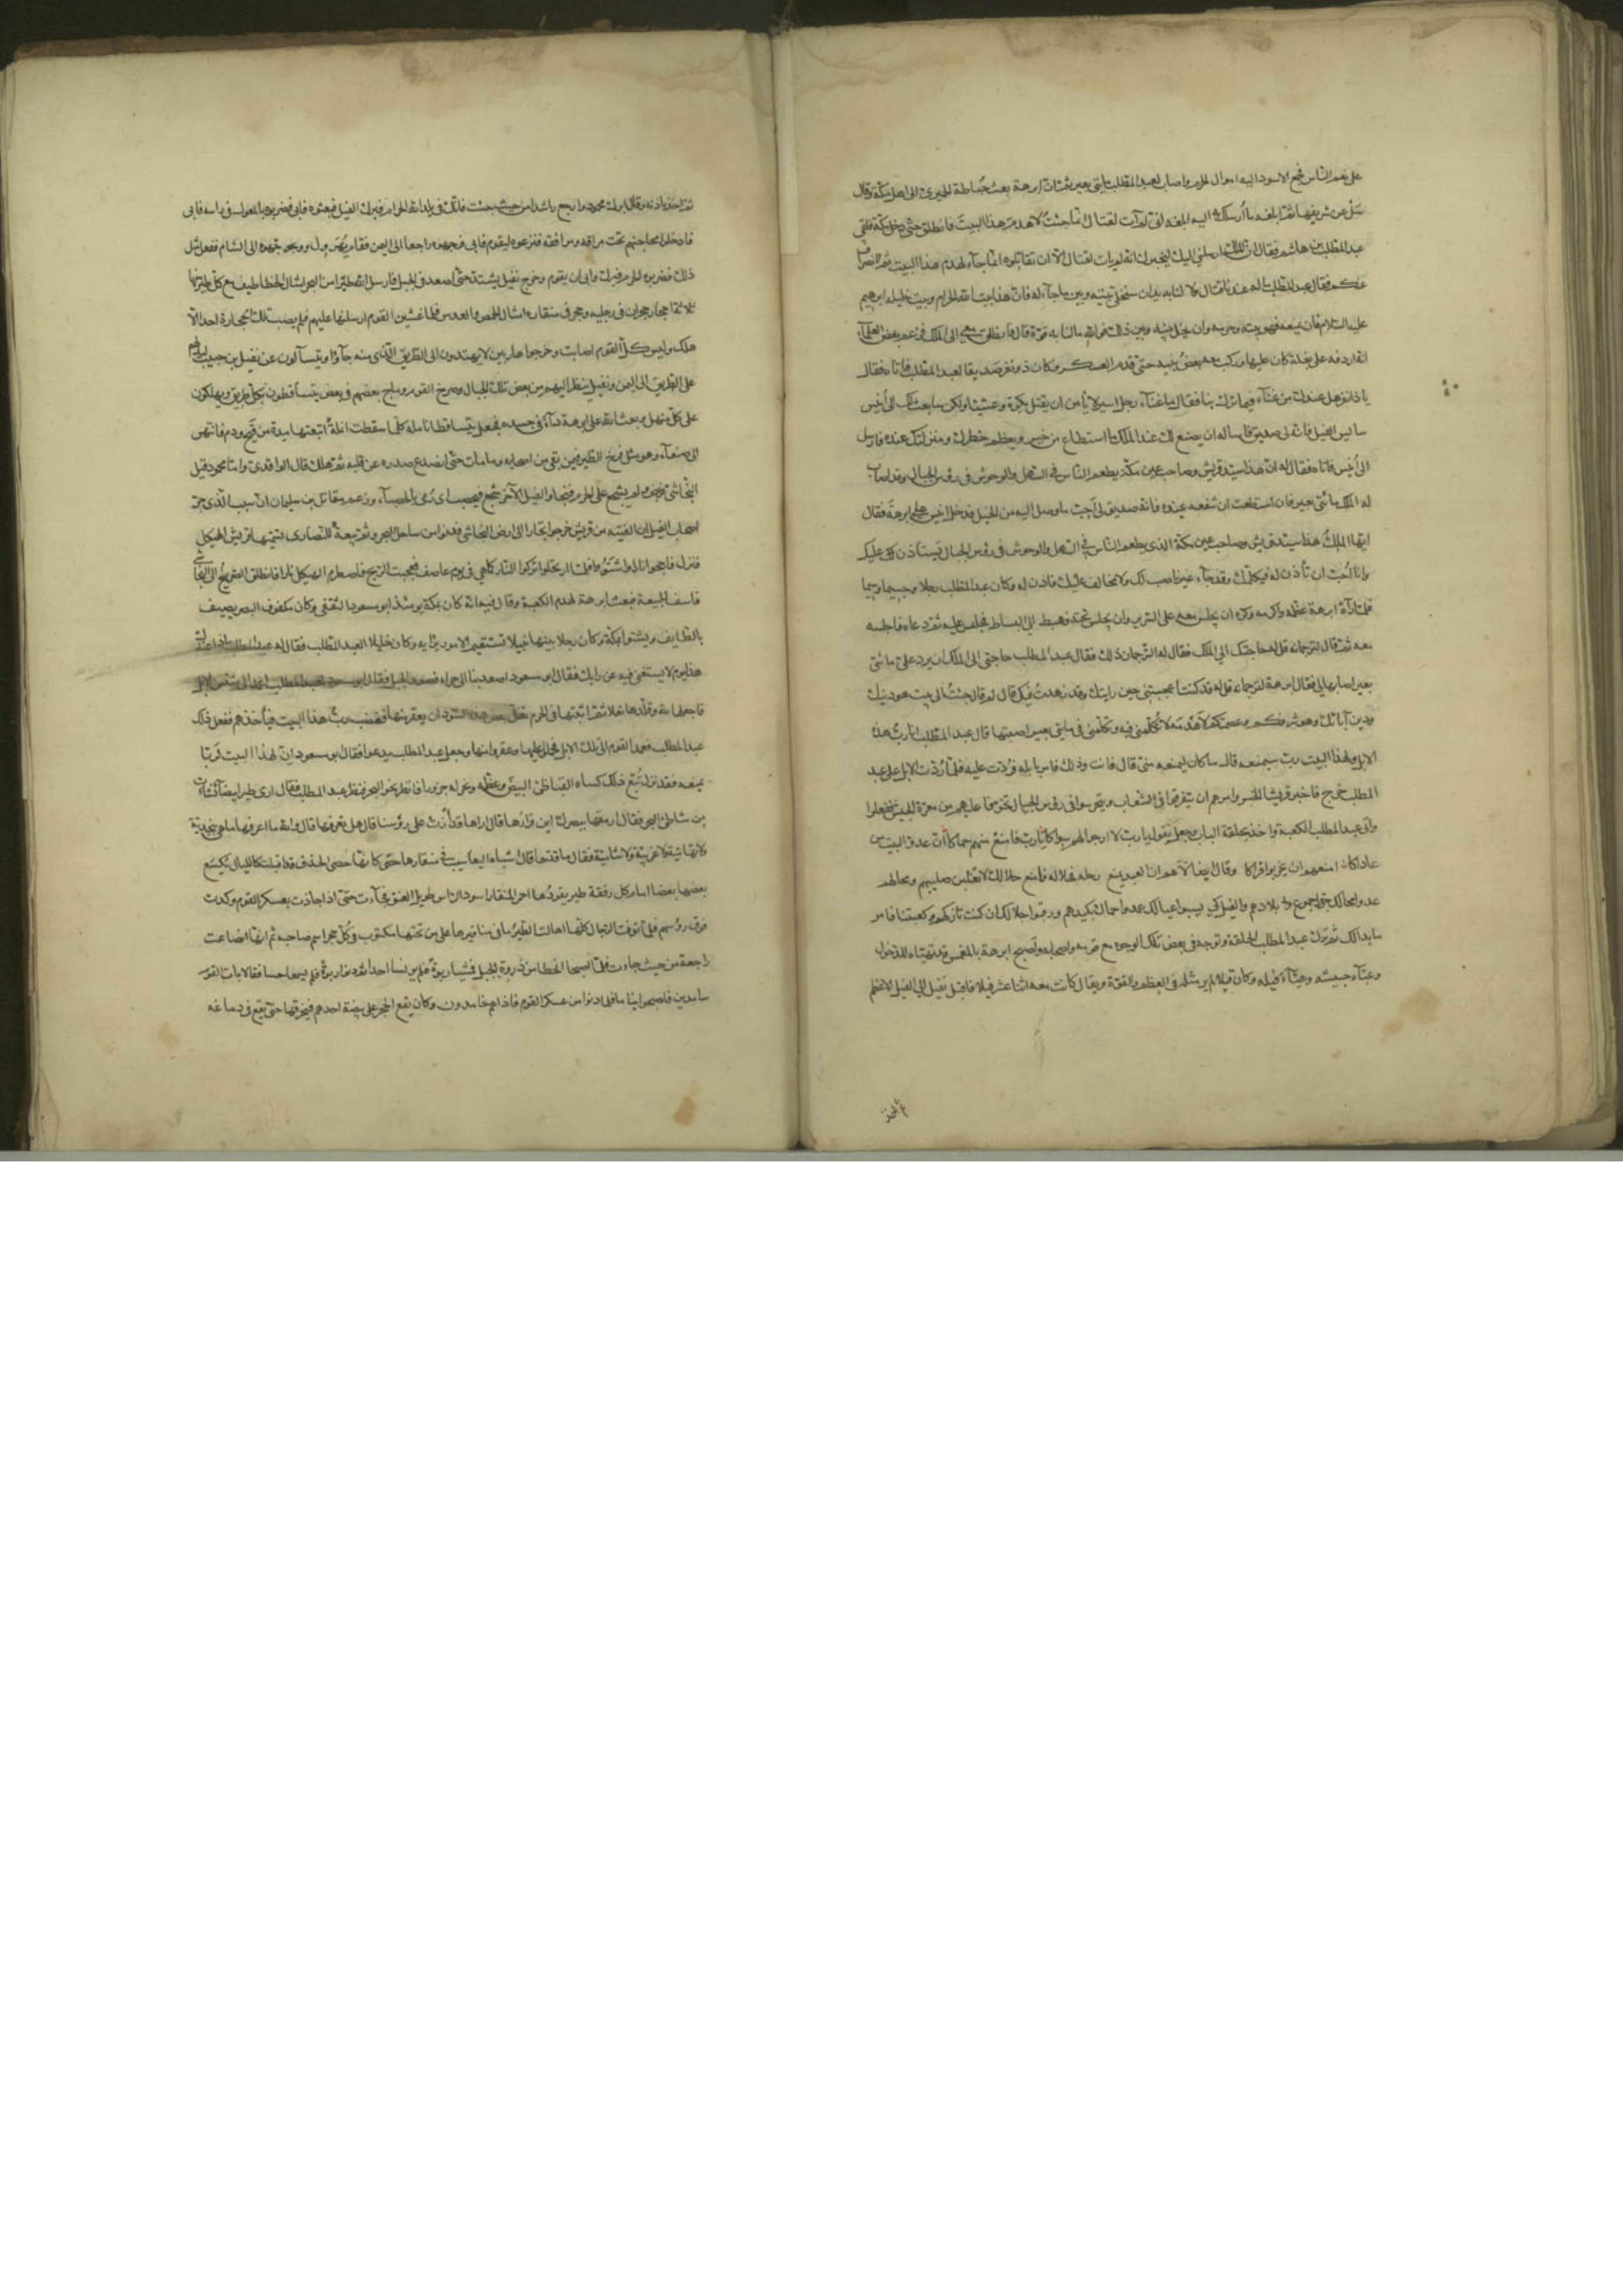 على نعم الناس فجمع الاسود اليه اموال الحرم واصاب لعبد المطلب مايتى بعير ثم ان ابرهة بعث حباطة الحميرى الى اهل مكة وقال
سل عن شريفها ثم ابلغه ما ارسلك به اليه ابلغه انى لم آت لقتال انما جئت لاهدم هذا البيت فانطلق حتى دخل مكة فلقى
عبد المطلب بن هاشم فقال ان الملك ارسلنى اليك ليخبرك انه لم يات لقتال الا ان تقاتلوه انما جاء لهدم هذا البيت ثم الانصراف
عنكم فقال عبد المطلب ما له عندنا قتال ولا لنا به يدان سنخلى بينه وبين ما جاء له فان هذا بيت الله الحرام وبيت خليله ابرهيم
عليه السلام فان يمنعه فهو بيته وحرمه وان يخل بينه وبين ذلك فوالله ما لنا به قوة قال فانطلق معى الى الملك فزعم بعض العلماء
انه اردفه على بغلة كان عليها وركب معه بعض بنيه حتى قدم العسكر وكان ذو نفر صديقا لعبد المطلب فاتاه فقال
يا ذا نفر هل عندك من غناء فيما نزل بنا فقال ما غناء رجل اسير لا يأمن ان يقتل بكرة وعشيا ولكن سابعث لك الى أنيس
سايس الفيل فانه لى صديق فاساله ان يصنع لك عند الملك ما استطاع من خير ويعظم خطرك ومنزلتك عنده فارسل
الى أنيس فاتاه فقال له ان هذا سيد قريش وصاحب عين مكة يطعم الناس فى السهل والوحوش فى رؤس الجبال وقد اصاب
له الملك مائتى بعير فان استطعت ان تنفعه عنده فانه صديق لى أحب ما وصل اليه من الخير فدخل انيس على ابرهة فقال
ايها الملك هذا سيد قريش وصاحب عين مكة الذى يطعم الناس فى السهل والوحوش فى رؤس الجبال يستاذن عليك
وانا أحب ان تأذن له فيكلمك وقد جاء غير ناصب لك ولا مخالف عليك فاذن له وكان عبد المطلب رجلا جسيما وسيما
فلما رآه ابرهة عظمه واكرمه وكره ان يجلس معه على السرير وان يجلس تحته فهبط الى البساط فجلس عليه ثم دعاه فاجلسه
معه ثم قال لترجمانه قل له حاجتك الى الملك فقال له الترجمان ذلك فقال عبد المطلب حاجتى الى الملك ان يرد على مائتى
بعير اصابها لى فقال ابرهة لترجمانه قل له قد كنت اعجبتنى حين رايتك وقد زهدت فيك قال لم قال جئت الى بيت هو دينك
ودين آبائك وهو شرفكم وعصمتكم لأهدمه لا تكلمنى فيه وتكلمنى فى مايتى بعير اصبتها قال عبد المطلب انا رب هذه
الابل ولهذا البيت رب سيمنعه قال ما كان ليمنعه منى قال فانت وذلك فامر بابله فردت عليه فلما ردت الابل على عبد
المطلب خرج فاخبر قريشا الخبر وامرهم ان يتفرقوا فى الشعاب ويتحرسوا فى رؤس الجبال تخوفا عليهم من معرة الجيش ففعلوا
واتى عبد المطلب الكعبة واخذ بحلقة الباب وجعل يقول يا رب لا ارجو لهم سواكا يا رب فامنع منهم حماكا ان عدو البيت من
عاداكا امنعهم ان يخربوا قراكا وقال ايضا لاهم ان العبد يمنع رحله فامنع حلالك لا يغلبن صليبهم ومحالهم
عدوا محالك جروا جموع بلادهم والفيل كى يسبوا عيالك عمدوا حماك بكيدهم جهلا وما رقبوا جلالك ان كنت تاركهم وكعبتنا فامر
ما بدا لك ثم ترك عبد المطلب الحلقة وتوجه فى بعض تلك الوجوه مع قومه واصبح ابرهة بالمغمس وقد تهيأ للدخول
وعبأ جيشه وهيأ فيله وكان فيلا لم ير مثله فى العظم والقوة ويقال كانت معه اثنا عشر فيلا فاقبل نفيل الى الفيل الاعظم
ثم اخذ باذنه وقال ابرك محمود وارجع راشدا من حيث جئت فانك فى بلد الله الحرام فبرك الفيل فبعثوه فابى فضربوه بالمعول فى راسه فابى
فادخلوا محاجنهم تحت مراقه ومرافقه فنزعوه ليقوم فابى فوجهوه راجعا الى اليمن فقام يهرول ووجهوه الى الشام ففعل مثل
ذلك فضربوه الى الحرم فبرك وابى ان يقوم وخرج نفيل يشتد حتى اصعد فى الجبل فارسل الله طيرا من البحر امثال الخطاطيف مع كل طير منها
ثلاثة احجار حجران فى رجليه وحجر فى منقاره امثال الحمص والعدس فلما غشين القوم ارسلنها عليهم فلم يصب تلك الحجارة احدا الا
هلك وليس كل القوم اصابت وخرجوا هاربين لا يهتدون الى الطريق الذى منه جاؤا ويتسآلون عن نفيل بن حبيب ليدلهم
على الطريق الى اليمن ونفيل ينظر اليهم من بعض تلك الجبال وصرخ القوم وماج بعضهم فى بعض يتساقطون بكل طريق ويهلكون
على كل منهل وبعث الله على ابرهة داء فى جسده فجعل يتساقط انامله كلما سقطت انملة اتبعتها مدة من قيح ودم فانتهى
الى صنعاء وهو مثل فرخ الطير فيمن بقى من اصحابه وما مات حتى انصدع صدره عن قلبه ثم هلك قال الواقدى واما محمود فيل
النجاشى فربض ولم يشجع على الحرم فنجا والفيل الآخر شجع فحصب اى رمى بالحصباء وزعم مقاتل بن سليمان ان السبب الذى جر
اصحاب الفيل ان الفتية من قريش خرجوا تجارا الى ارض النجاشى فدنوا من ساحل البحر وثم بيعة للنصارى تسميها قريش الهيكل
فنزلوا فاججوا نارا واشتووا فلما ارتحلوا تركوا النار كما هى فى يوم عاصف فعجت الريح فاضطرم الهيكل نارا فانطلق الصريخ الى النجاشى
فاسف للبيعة فبعث ابرهة لهدم الكعبة وقال فيه انه كان بمكة يومئذ ابو مسعود الثقفى وكان مكفوف البصر يصيف
بالطايف ويشتو بمكة وكان رجلا نبيها نبيلا تستقيم الامور برايه وكان خليلا لعبد المطلب فقال له عبد المطلب ماذا عندك
هذا يوم لا يستغنى فيه عن رايك فقال ابو مسعود اصعد بنا الى حراء فصعد الجبل فقال ابو مسعود لعبد المطلب اعمد الى مائة من الابل
فاجعلها لله وقلدها نعلا ثم ابثثها فى الحرم لعل بعض هذه السودان يعقر منها فيغضب رب هذا البيت فيأخذهم ففعل ذلك
عبد المطلب فعمد القوم الى تلك الابل فحملوا عليها وعقروا منها وجعل عبد المطلب يدعو فقال ابو مسعود ان لهذا البيت ربا
يمنعه فقد نزل تبع فلما كساه القباطى البيض وعظمه ونحر له جزورا فانظر نحو البحر فنظر عبد المطلب فقال ارى طيرا بيضا نشأت
من شاطئ البحر فقال ارمقها ببصرك اين قرارها قال اراها قد دارت على رؤسنا قال هل تعرفها قال والله ما اعرفها ما هى بنجدية
ولا تهامية ولا غربية ولا شامية فقال ما قدها قال اشباه اليعاسيب فى منقارها حصى كانها حصى الحذف قد اقبلت كالليل يكسع
بعضها بعضا امام كل رفقة طير يقودها احمر المنقار اسود الراس طويل العنق فجاءت حتى اذا حاذت بعسكر القوم وكدت
فوق رؤسهم فلما توافت الرجال كلها اهالت الطير ما فى مناقيرها على من تحتها مكتوب فى كل حجر اسم صاحبه ثم انها انصاعت
راجعة من حيث جاءت فلما اصبحا انحطا من ذروة الجبل فمشيا ربوة فلم يونسا احدا ثم دنوا ربوة فلم يسمعا حسا فقالا بات القوم
سامدين فاصبحوا نياما فلما دنوا من عسكر القوم فاذا هم خامدون وكان يقع الحجر على بيضة احدهم فيخرقها حتى يقع فى دماغه